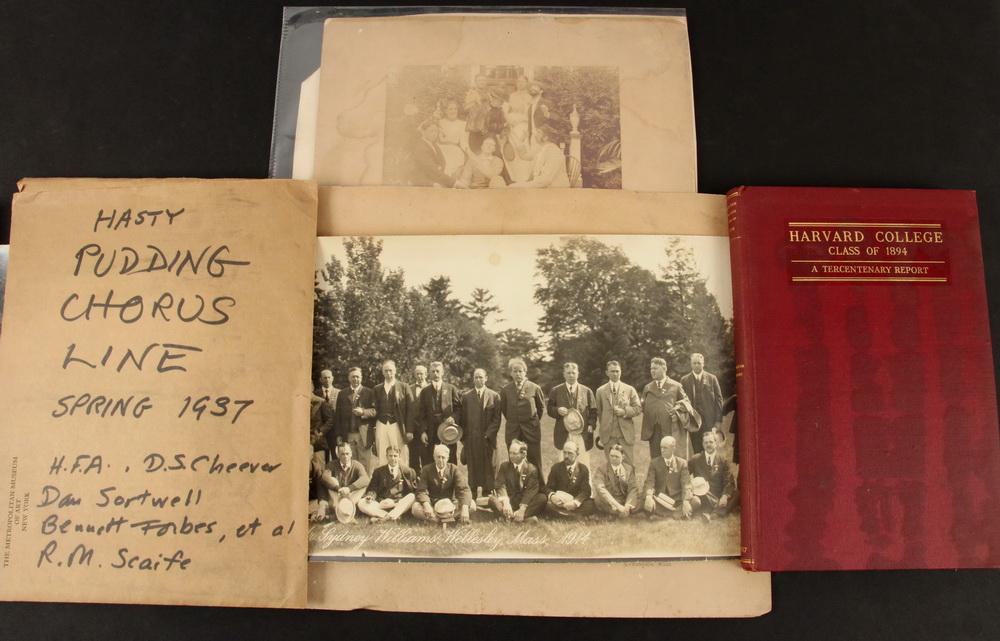 HASTY
PUDDING
CHORUS
LINE
SPRING 1937
H.F.A. , D.S. Cheever
Dan Sortwell
Bennett Forbes, et al
R.M. Scaife
THE METROPOLITAN MUSEUM
OF ART
NEW YORK
Sydney Williams, Wellesley, Mass. 1914
HARVARD COLLEGE
CLASS OF 1894
A TERCENTENARY REPORT